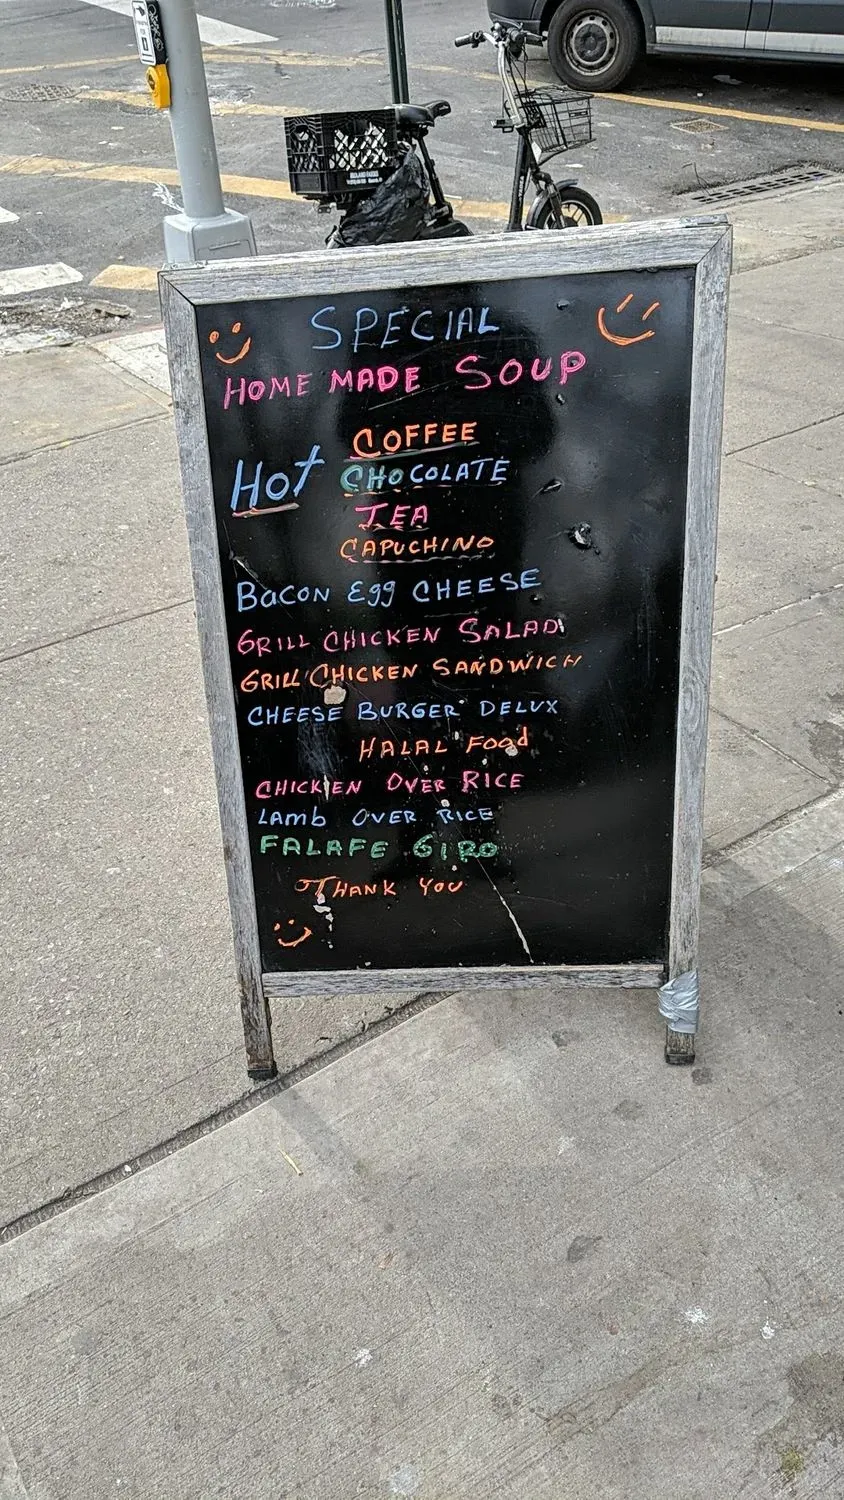 SPECIAL
HOME MADE SOUP
COFFEE
Hot CHOCOLATE
TEA
CAPUCHINO
BACON Egg CHEESE
GRILL CHICKEN SALAD
GRILL CHICKEN SANDWICH
CHEESE BURGER DELUX
HALAL Food
CHICKEN OVER RICE
LAMb OVER RICE
FALAFE GIRO
THANK YOU